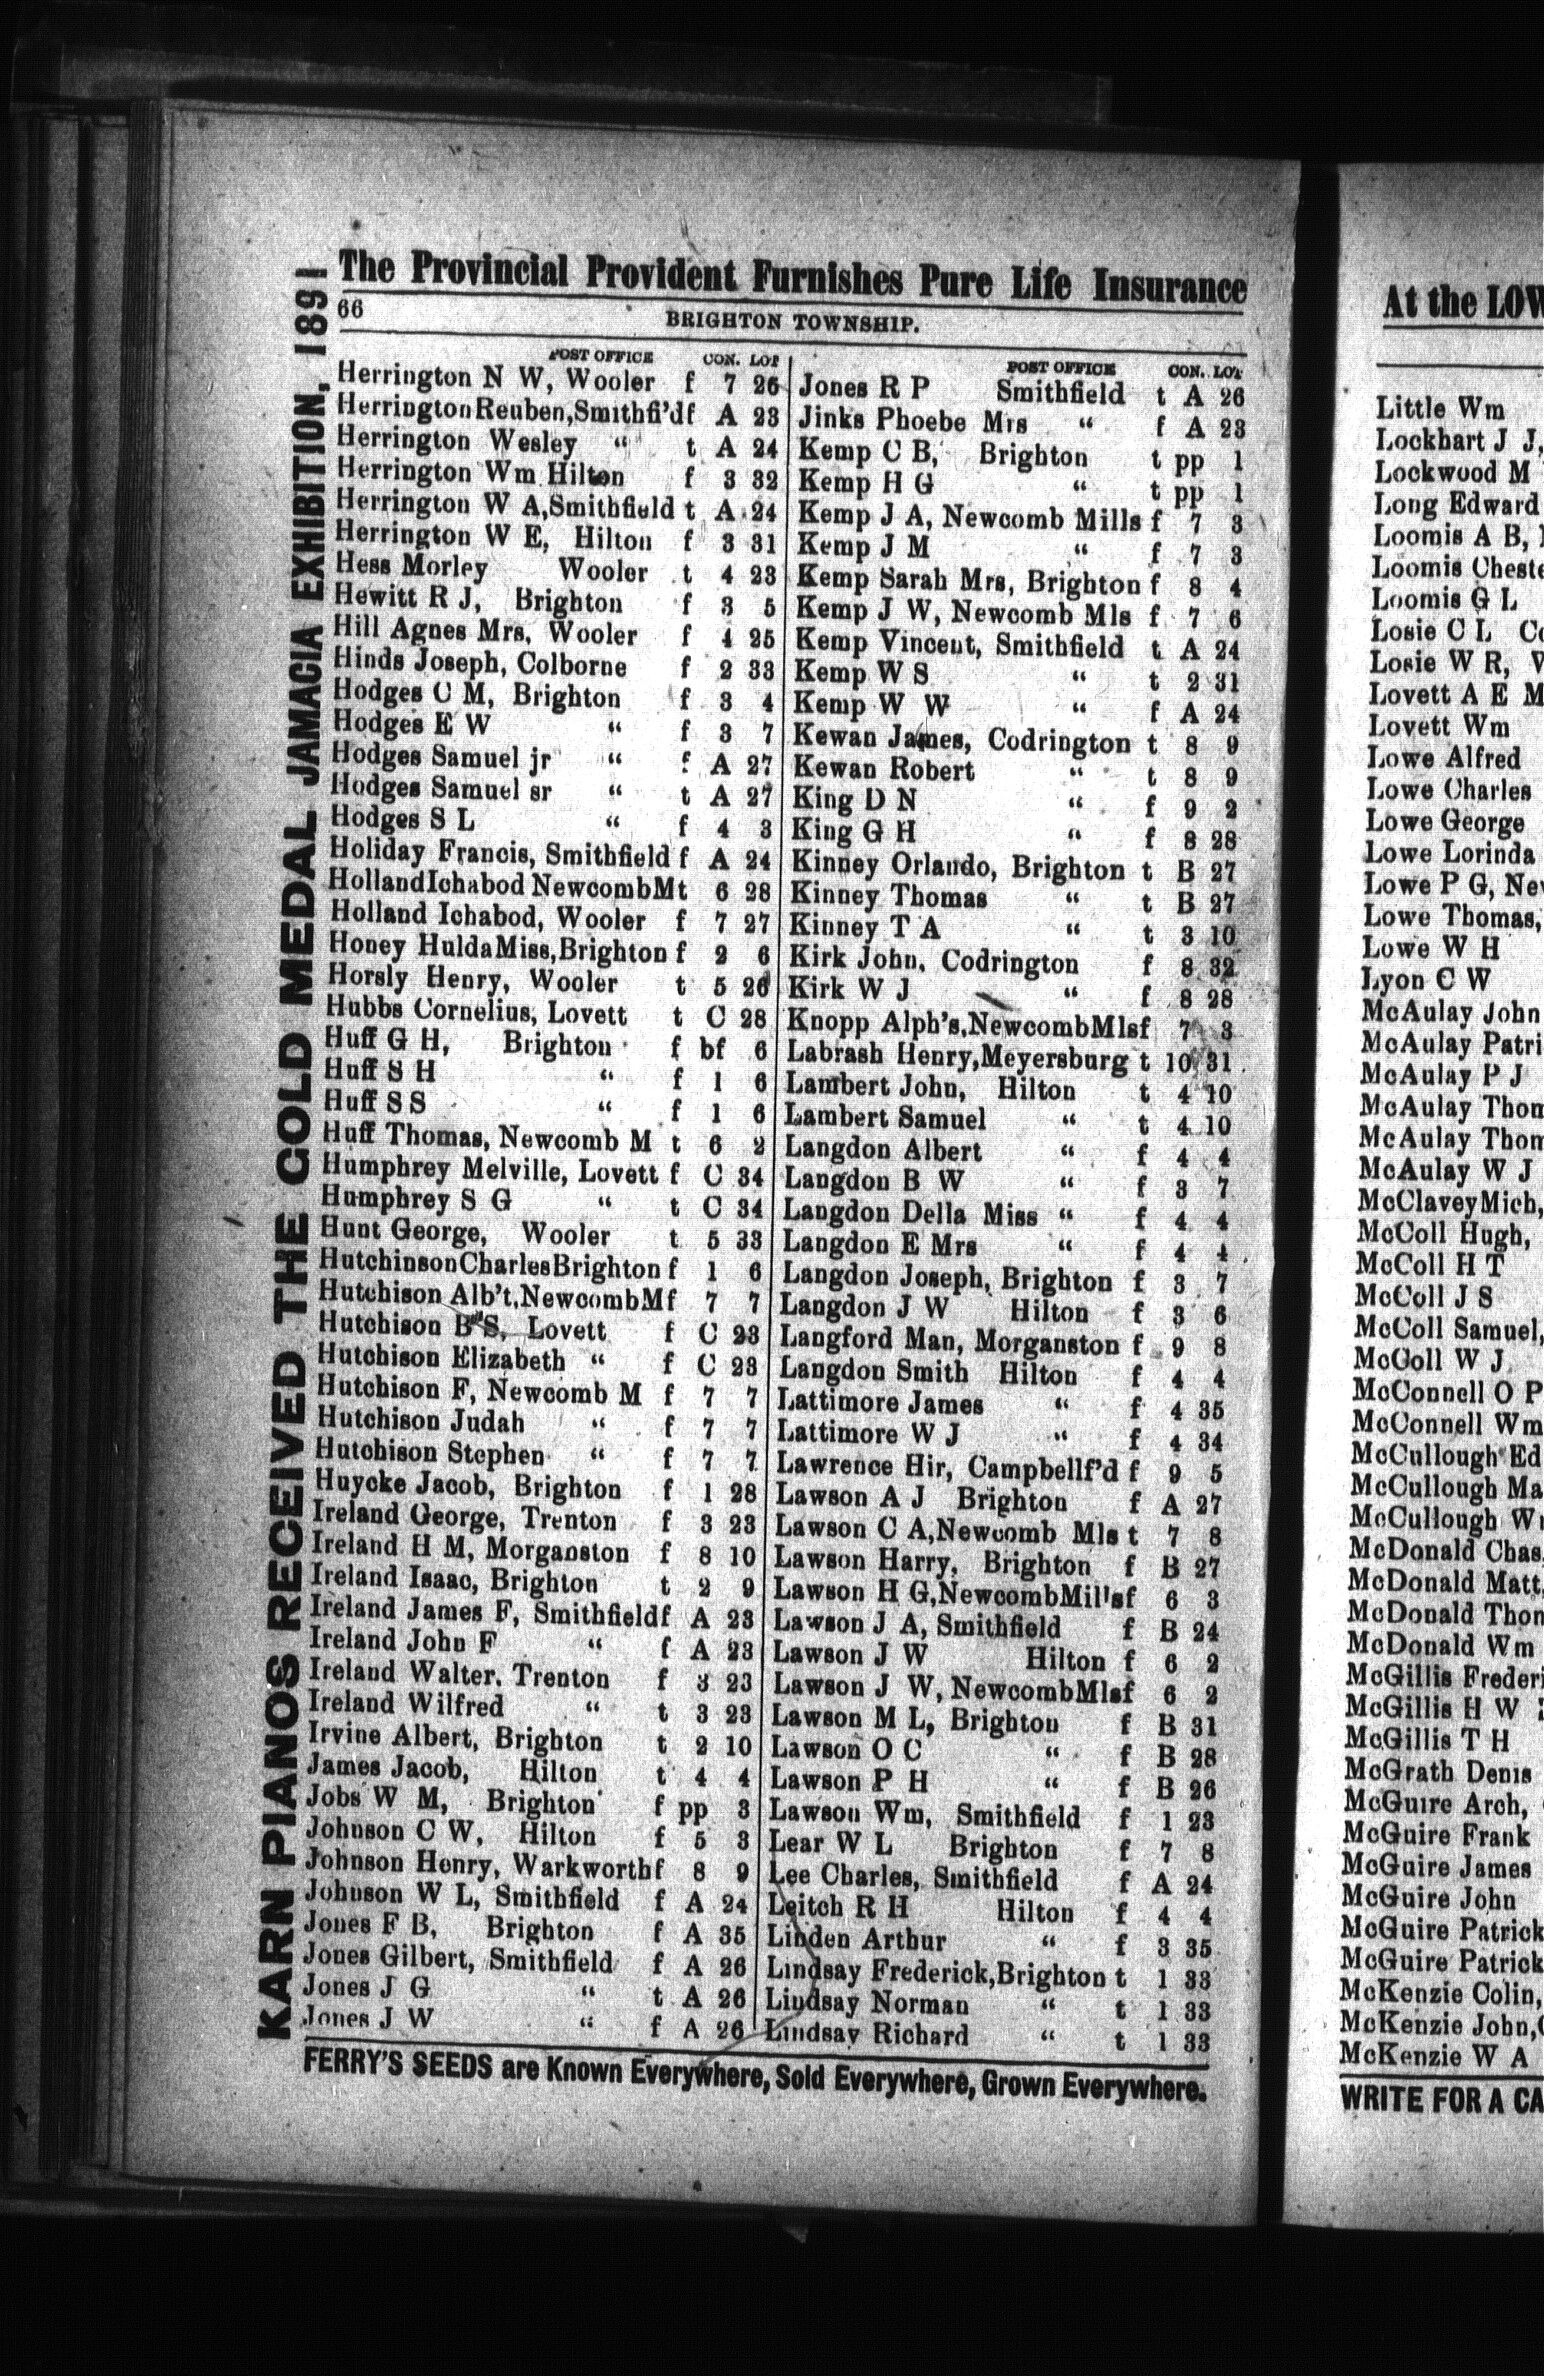 The Provincial Provident Furnishes Pure Life Insurance
66
BRIGHTON TOWNSHIP.
KARN PIANOS RECEIVED THE GOLD MEDAL JAMACIA EXHIBITION, 1891
POST OFFICE CON. LOT
Herrington N W, Wooler f 7 26
HerringtonReuben,Smithfi'd f A 23
Herrington Wesley “ t A 24
Herrington Wm Hilton f 3 32
Herrington W A,Smithfield t A 24
Herrington W E, Hilton f 3 31
Hess Morley Wooler t 4 23
Hewitt R J, Brighton f 3 5
Hill Agnes Mrs, Wooler f 4 25
Hinds Joseph, Colborne f 2 33
Hodges C M, Brighton f 3 4
Hodges E W “ f 3 7
Hodges Samuel jr “ f A 27
Hodges Samuel sr “ t A 27
Hodges S L “ f 4 3
Holiday Francis, Smithfield f A 24
HollandIchabod NewcombM t 6 28
Holland Ichabod, Wooler f 7 27
Honey HuldaMiss,Brighton f 2 6
Horsly Henry, Wooler t 5 26
Hubbs Cornelius, Lovett t C 28
Huff G H, Brighton f bf 6
Huff S H “ f 1 6
Huff S S “ f 1 6
Huff Thomas, Newcomb M t 6 2
Humphrey Melville, Lovett f C 34
Humphrey S G “ t C 34
Hunt George, Wooler t 5 33
HutchinsonCharlesBrighton f 1 6
Hutchison Alb't,NewcombM f 7 7
Hutchison B S, Lovett f C 23
Hutchison Elizabeth “ f C 23
Hutchison F, Newcomb M f 7 7
Hutchison Judah “ f 7 7
Hutchison Stephen “ f 7 7
Huycke Jacob, Brighton f 1 28
Ireland George, Trenton f 3 23
Ireland H M, Morganston f 8 10
Ireland Isaac, Brighton t 2 9
Ireland James F, Smithfield f A 23
Ireland John F “ f A 23
Ireland Walter. Trenton f 3 23
Ireland Wilfred “ t 3 23
Irvine Albert, Brighton t 2 10
James Jacob, Hilton t 4 4
Jobs W M, Brighton f pp 3
Johnson C W, Hilton f 5 3
Johnson Henry, Warkworth f 8 9
Johnson W L, Smithfield f A 24
Jones F B, Brighton f A 35
Jones Gilbert, Smithfield f A 26
Jones J G “ t A 26
Jones J W “ f A 26
POST OFFICE CON. LOT
Jones R P Smithfield t A 26
Jinks Phoebe Mrs “ f A 23
Kemp C B, Brighton t pp 1
Kemp H G “ t pp 1
Kemp J A, Newcomb Mills f 7 3
Kemp J M “ f 7 3
Kemp Sarah Mrs, Brighton f 8 4
Kemp J W, Newcomb Mls f 7 6
Kemp Vincent, Smithfield t A 24
Kemp W S “ t 2 31
Kemp W W “ f A 24
Kewan James, Codrington t 8 9
Kewan Robert “ t 8 9
King D N “ f 9 2
King G H “ f 8 28
Kinney Orlando, Brighton t B 27
Kinney Thomas “ t B 27
Kinney T A “ t 3 10
Kirk John, Codrington f 8 32
Kirk W J “ f 8 28
Knopp Alph's,NewcombMls f 7 3
Labrash Henry,Meyersburg t 10 31
Lambert John, Hilton t 4 10
Lambert Samuel “ t 4 10
Langdon Albert “ f 4 4
Langdon B W “ f 3 7
Langdon Della Miss “ f 4 4
Langdon E Mrs “ f 4 4
Langdon Joseph, Brighton f 3 7
Langdon J W Hilton f 3 6
Langford Man, Morganston f 9 8
Langdon Smith Hilton f 4 4
Lattimore James “ f 4 35
Lattimore W J “ f 4 34
Lawrence Hir, Campbellf'd f 9 5
Lawson A J Brighton f A 27
Lawson C A,Newcomb Mls t 7 8
Lawson Harry, Brighton f B 27
Lawson H G,NewcombMill's f 6 3
Lawson J A, Smithfield f B 24
Lawson J W Hilton f 6 2
Lawson J W, NewcombMls f 6 2
Lawson M L, Brighton f B 31
Lawson O C “ f B 28
Lawson P H “ f B 26
Lawson Wm, Smithfield f 1 23
Lear W L Brighton f 7 8
Lee Charles, Smithfield f A 24
Leitch R H Hilton f 4 4
Linden Arthur “ f 3 35
Lindsay Frederick,Brighton t 1 33
Lindsay Norman “ t 1 33
Lindsay Richard “ t 1 33
FERRY'S SEEDS are Known Everywhere, Sold Everywhere, Grown Everywhere.
At the
Little Wm
Lockhart J J,
Lockwood M
Long Edward
Loomis A B,
Loomis
Loomis G L
Losie C L
Losie W R,
Lovett A E
Lovett Wm
Lowe Alfred
Lowe Charles
Lowe George
Lowe Lorinda
Lowe P G,
Lowe Thomas,
Lowe W H
Lyon C W
McAulay John
McAulay
McAulay P J
McAulay
McAulay
McAulay W J
McClavey Mich,
McColl Hugh,
McColl H T
McColl J S
McColl Samuel,
McColl W J
McConnell O P
McConnell Wm
McCullough Ed
McCullough
McCullough
McDonald Chas,
McDonald Matt,
McDonald
McDonald Wm
McGillis
McGillis H W
McGillis T H
McGrath Denis
McGuire Arch,
McGuire Frank
McGuire James
McGuire John
McGuire Patrick
McGuire Patrick
McKenzie Colin,
McKenzie John,
McKenzie W A
WRITE FOR A